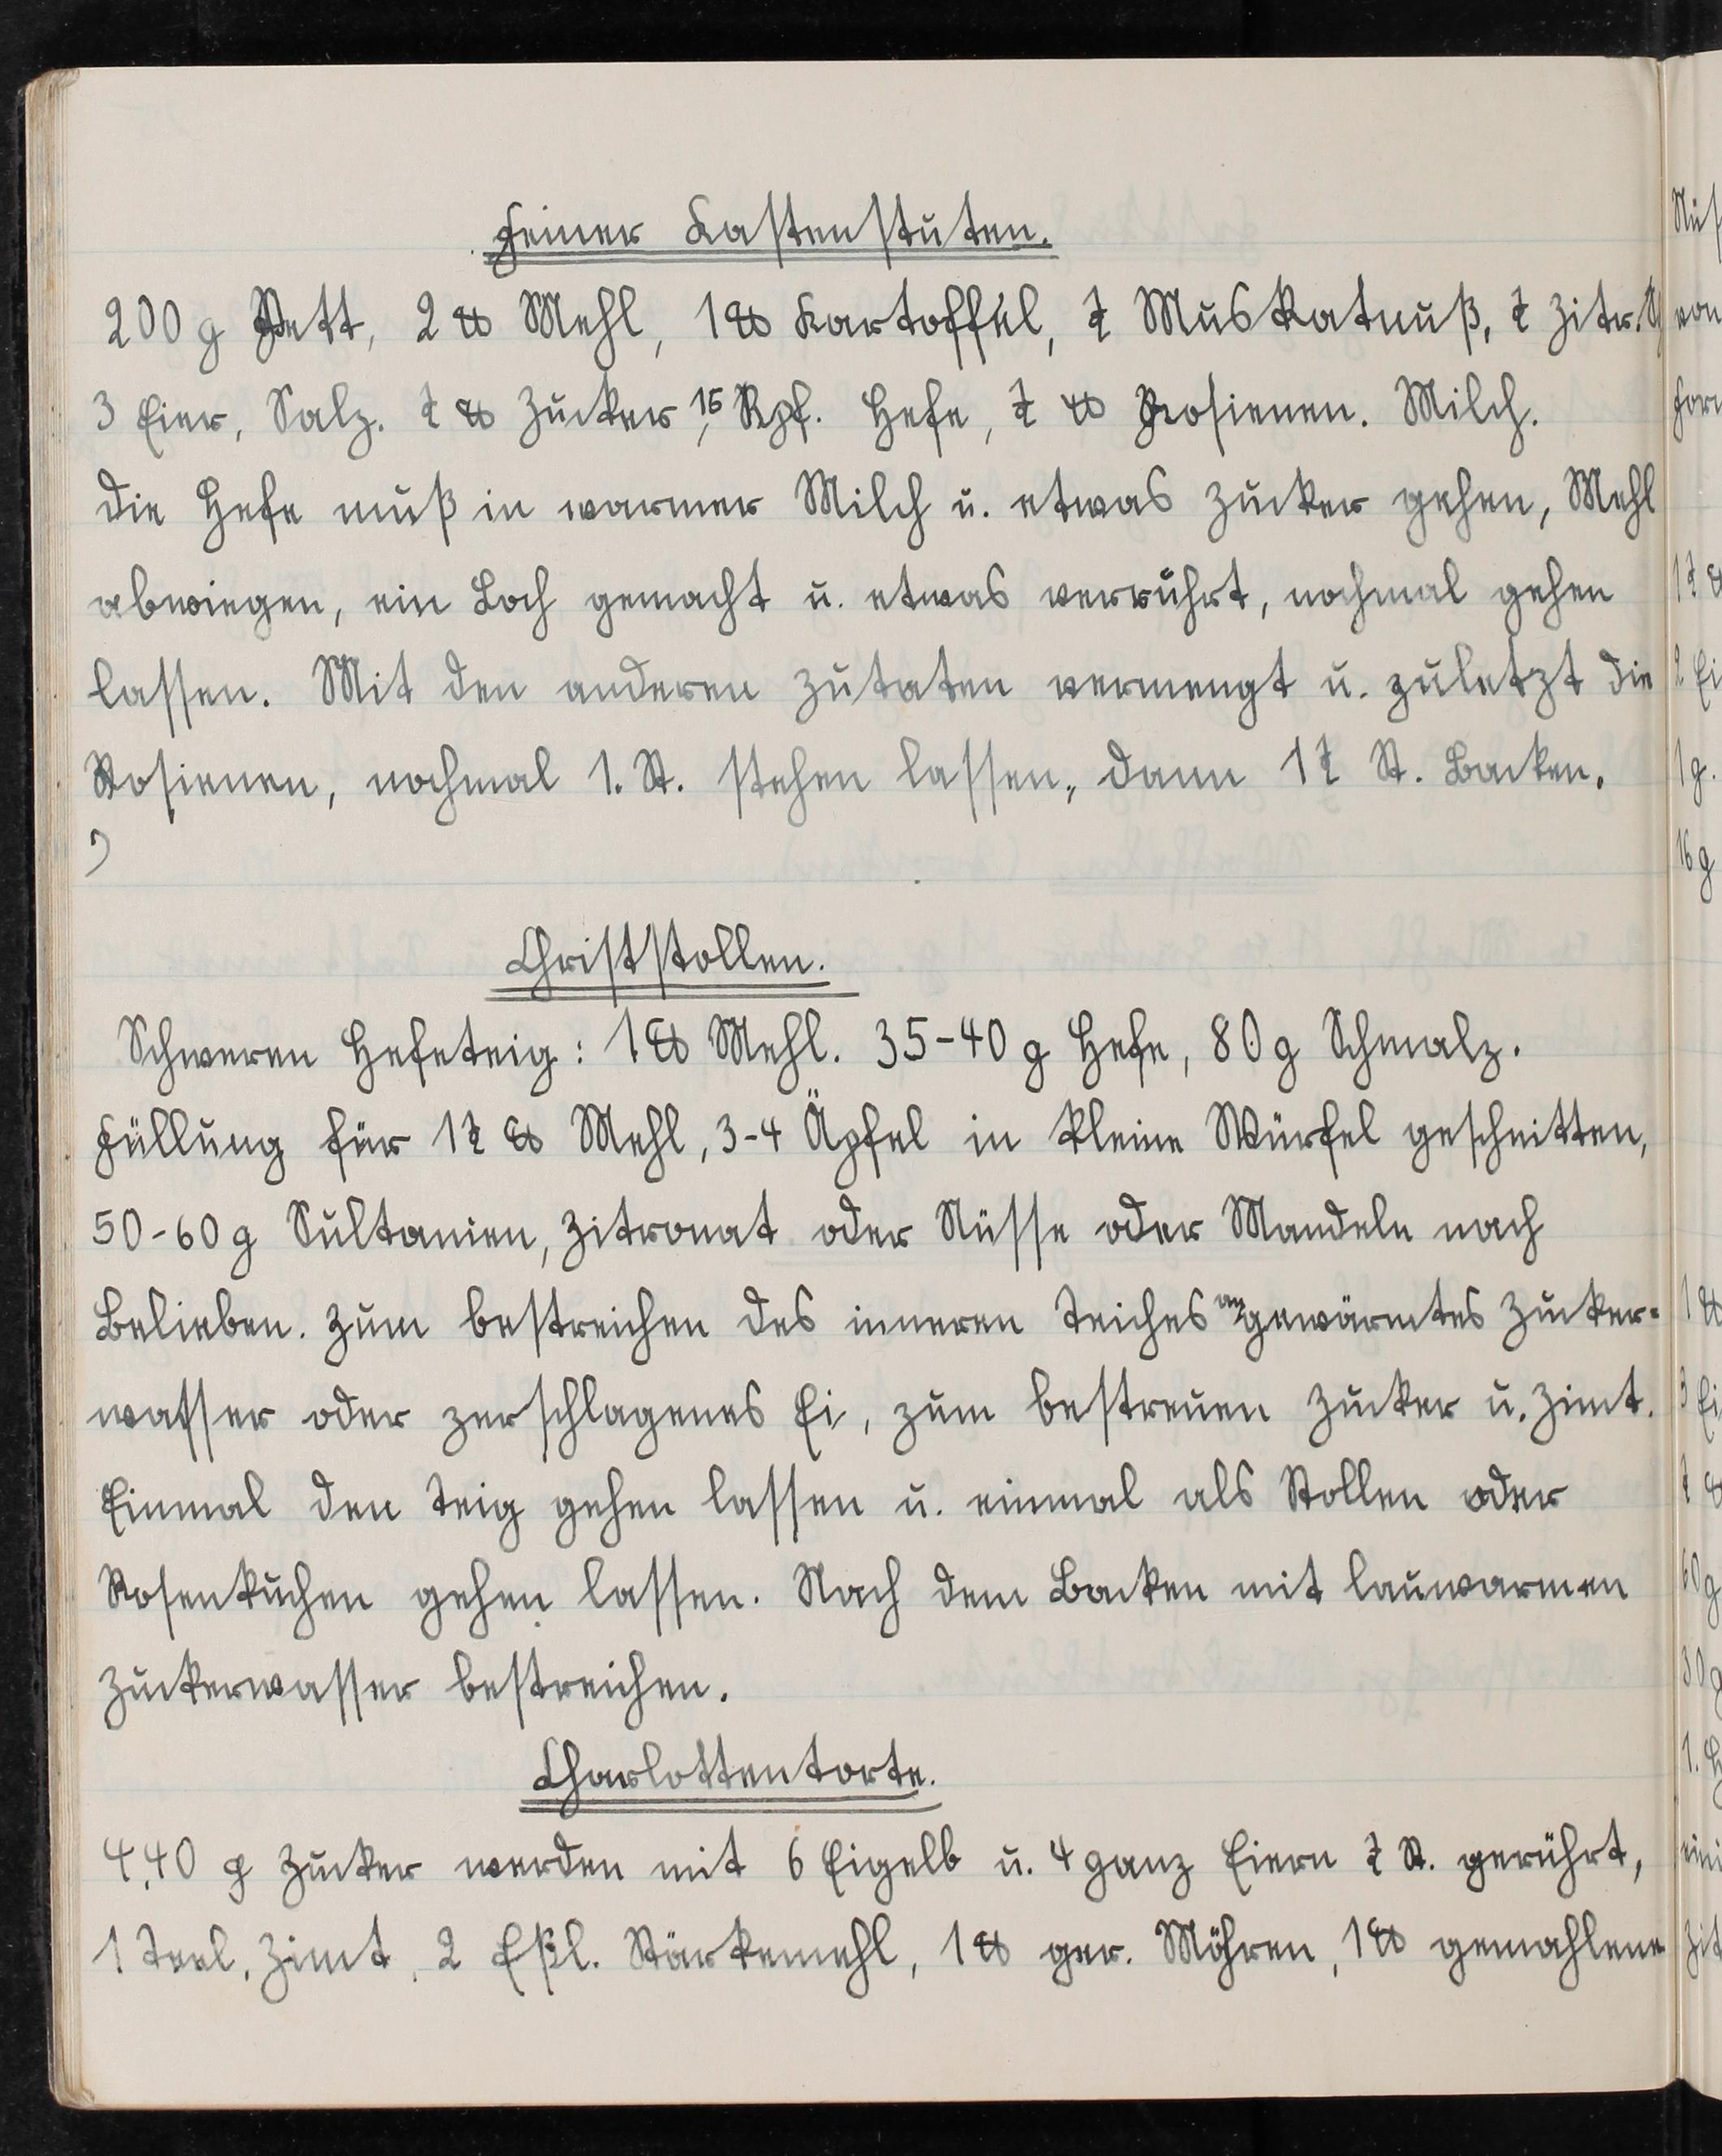 Feiner Kastenstuten.
200 g Fett, 2 ℔ Mehl, 1 ℔ Kartoffel, ½ Muskatnuß, ½ Zitr.
3 Eier, Salz. ½ ℔ Zucker, 15 Rpf. Hefe, ½ ℔ Rosienen. Milch.
Die Hefe muß in warmer Milch u. etwas Zucker gehen, Mehl
abwiegen, ein Loch gemacht u. etwas verrührt, nochmal gehen
lassen. Mit den anderen Zutaten vermengt u. zuletzt die
Rosienen, nochmal 1. St. stehen lassen, dann 1½ St. Backen.
Christstollen.
Schweren Hefeteig: 1 ℔ Mehl. 35-40 g Hefe, 80 g Schmalz.
Füllung für 1½ ℔ Mehl, 3-4 Äpfel in kleine Würfel geschnitten,
50-60 g Sultanien, Zitronat oder Nüsse oder Mandeln nach
Belieben. Zum bestreichen des inneren Teiches angewärmtes Zucker-
wasser oder zerschlagenes Ei, zum bestreuen Zucker u. Zimt.
Einmal den Teig gehen lassen u. einmal als Stollen oder
Rosenkuchen gehen lassen. Nach dem Backen mit lauwarmen
Zuckerwasser bestreichen.
Charlottentorte.
440 g Zucker werden mit 6 Eigelb u. 4 ganz Eiern ½ St. gerührt,
1 Teel. Zimt, 2 Eßl. Stärkemehl, 1 ℔ ger. Möhren, 1 ℔ gemahlene